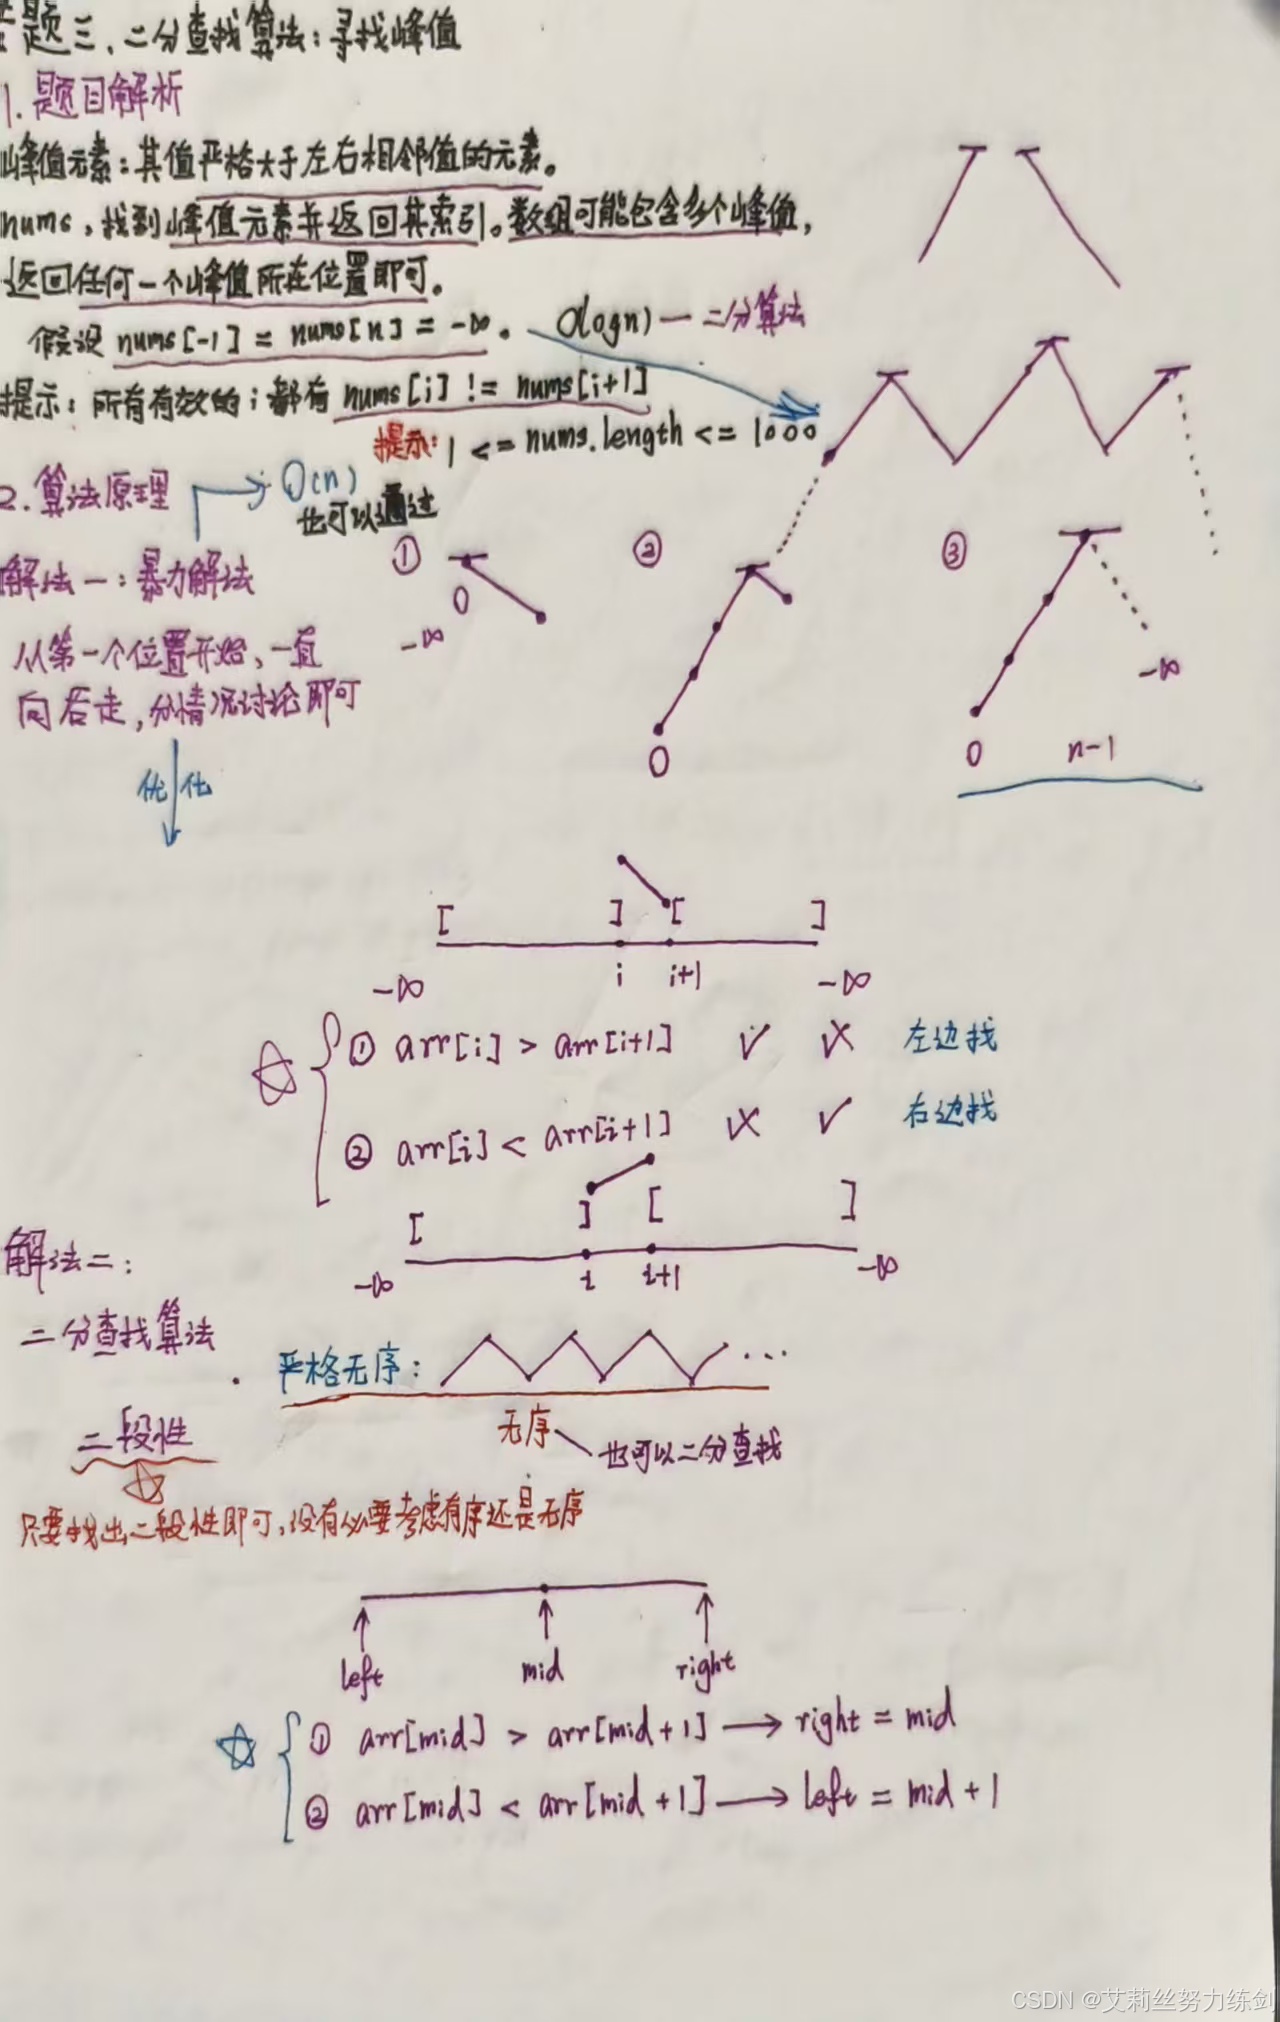 专题三、二分查找算法：寻找峰值
1. 题目解析
峰值元素：其值严格大于左右相邻值的元素。
nums，找到峰值元素并返回其索引。数组可能包含多个峰值，
返回任何一个峰值所在位置即可。
假设 nums[-1] = nums[n] = -∞。 O(logn) — 二分算法
提示：所有有效的 i 都有 nums[i] != nums[i+1]
提示：1 <= nums.length <= 1000
2. 算法原理 O(n)
也可以通过
① ② ③
解法一：暴力解法
0
-∞
从第一个位置开始、一直
向右走，分情况讨论即可
-∞
0 0 n-1
优化
[ ] [ ]
-∞ i i+1 -∞
① arr[i] > arr[i+1] ✓ ✗ 左边找
② arr[i] < arr[i+1] ✗ ✓ 右边找
[ ] [ ]
解法二：
-∞ i i+1 -∞
二分查找算法
严格无序： ...
二段性
无序 也可以二分查找
只要找出二段性即可，没有必要考虑有序还是无序
left mid right
① arr[mid] > arr[mid+1] → right = mid
② arr[mid] < arr[mid+1] → left = mid+1
CSDN @艾莉丝努力练剑